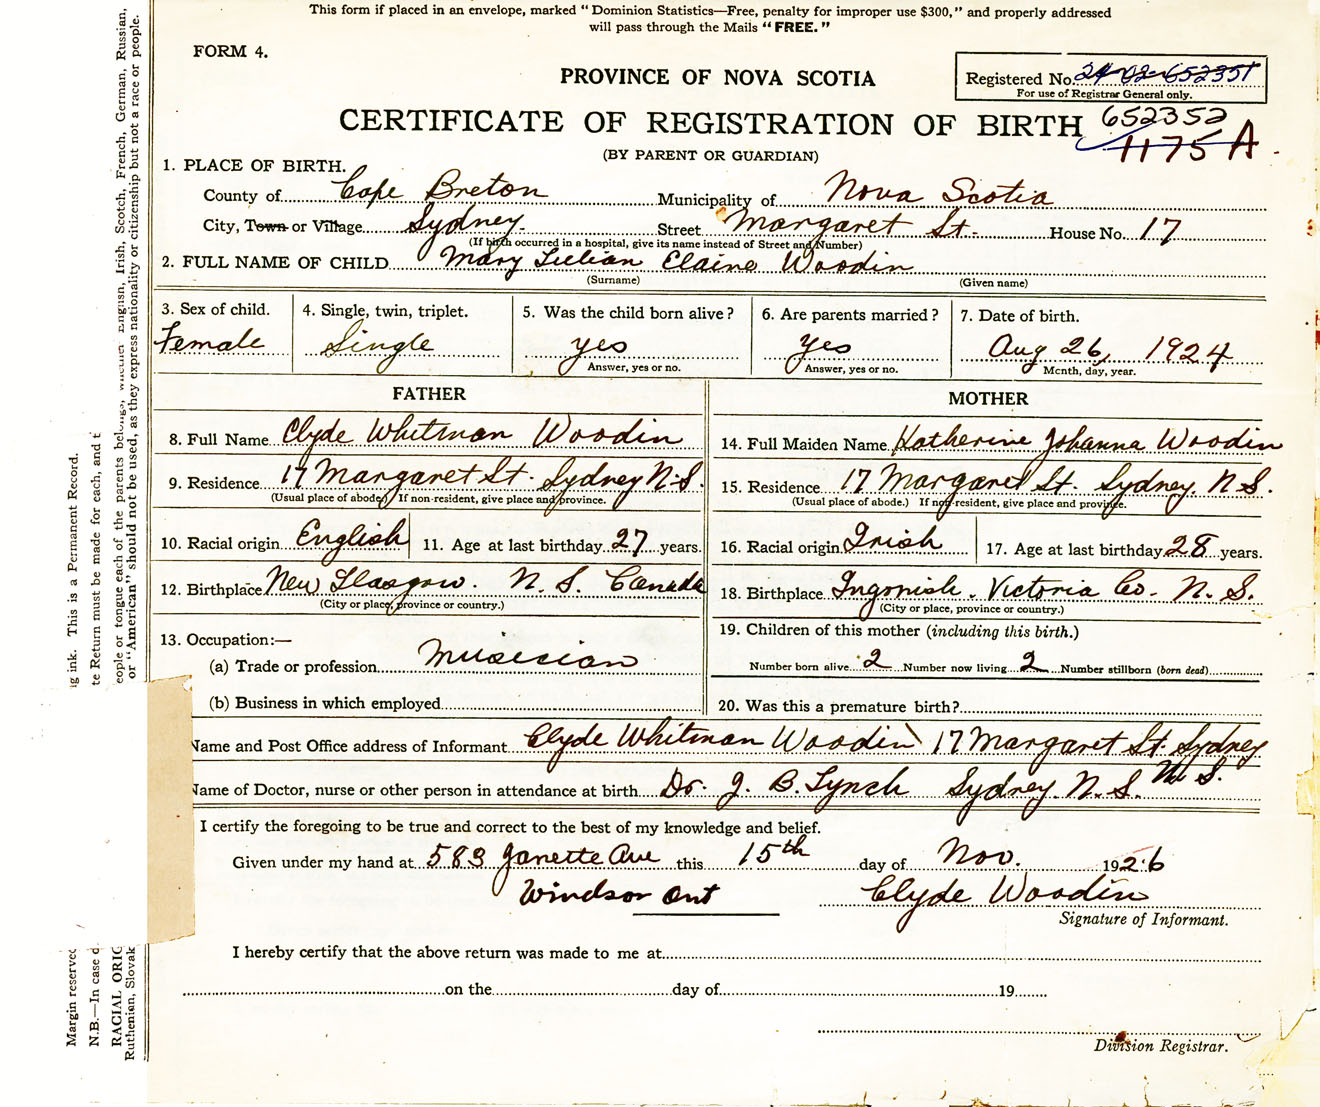 This form if placed in an envelope, marked "Dominion Statistics—Free, penalty for improper use $300," and properly addressed
will pass through the Mails "FREE."
FORM 4.
PROVINCE OF NOVA SCOTIA
Registered No. 24-02-652351
For use of Registrar General only.
CERTIFICATE OF REGISTRATION OF BIRTH 652352
1175 A
(BY PARENT OR GUARDIAN)
1. PLACE OF BIRTH.
County of Cape Breton Municipality of Nova Scotia
City, Town or Village Sydney. Street Margaret St. House No. 17
(If birth occurred in a hospital, give its name instead of Street and Number)
2. FULL NAME OF CHILD Mary Lillian Elaine Woodin
(Surname) (Given name)
3. Sex of child. 4. Single, twin, triplet. 5. Was the child born alive? 6. Are parents married? 7. Date of birth.
Female Single yes Yes Aug 26, 1924
Answer, yes or no. Answer, yes or no. Month, day, year.
FATHER MOTHER
8. Full Name Clyde Whitman Woodin 14. Full Maiden Name Katherine Johanna Woodin
9. Residence 17 Margaret St. Sydney N.S. 15. Residence 17 Margaret St. Sydney. N.S.
(Usual place of abode) If non-resident, give place and province. (Usual place of abode.) If non-resident, give place and province.
10. Racial origin English 11. Age at last birthday 27 years. 16. Racial origin Irish 17. Age at last birthday 28 years.
12. Birthplace New Glasgow. N.S. Canada 18. Birthplace Ingonish. Victoria Co. N.S.
(City or place, province or country.) (City or place, province or country.)
13. Occupation:— 19. Children of this mother (including this birth.)
(a) Trade or profession Musician Number born alive 2 Number now living 2 Number stillborn (born dead)
(b) Business in which employed 20. Was this a premature birth?
Name and Post Office address of Informant Clyde Whitman Woodin 17 Margaret St. Sydney
N.S.
Name of Doctor, nurse or other person in attendance at birth Dr. J. B. Lynch Sydney. N.S.
I certify the foregoing to be true and correct to the best of my knowledge and belief.
Given under my hand at 583 Janette Ave this 15th day of Nov. 1926
Windsor Ont Clyde Woodin
Signature of Informant.
I hereby certify that the above return was made to me at
on the day of 19
Division Registrar.
Margin reserved
g ink. This is a Permanent Record.
N.B.—In case
te Return must be made for each, and t
RACIAL ORIG
eople or tongue each of the parents belongs, whether English, Irish, Scotch, French, German, Russian,
Ruthenian, Slovak
or "American" should not be used, as they express nationality or citizenship but not a race or people.